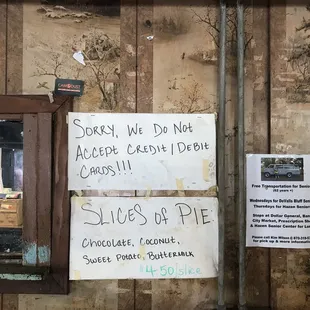 Sorry, We Do Not
Accept Credit/Debit
Cards!!!
Slices of Pie
Chocolate, Coconut,
Sweet Potato, Buttermilk
4.50/slice
Free Transportation for Seniors
Wednesdays for DeValls Bluff
Thursdays for Hazen Senior
Stops at Dollar General,
City Market, Prescription
& Hazen Senior
for pick up & more